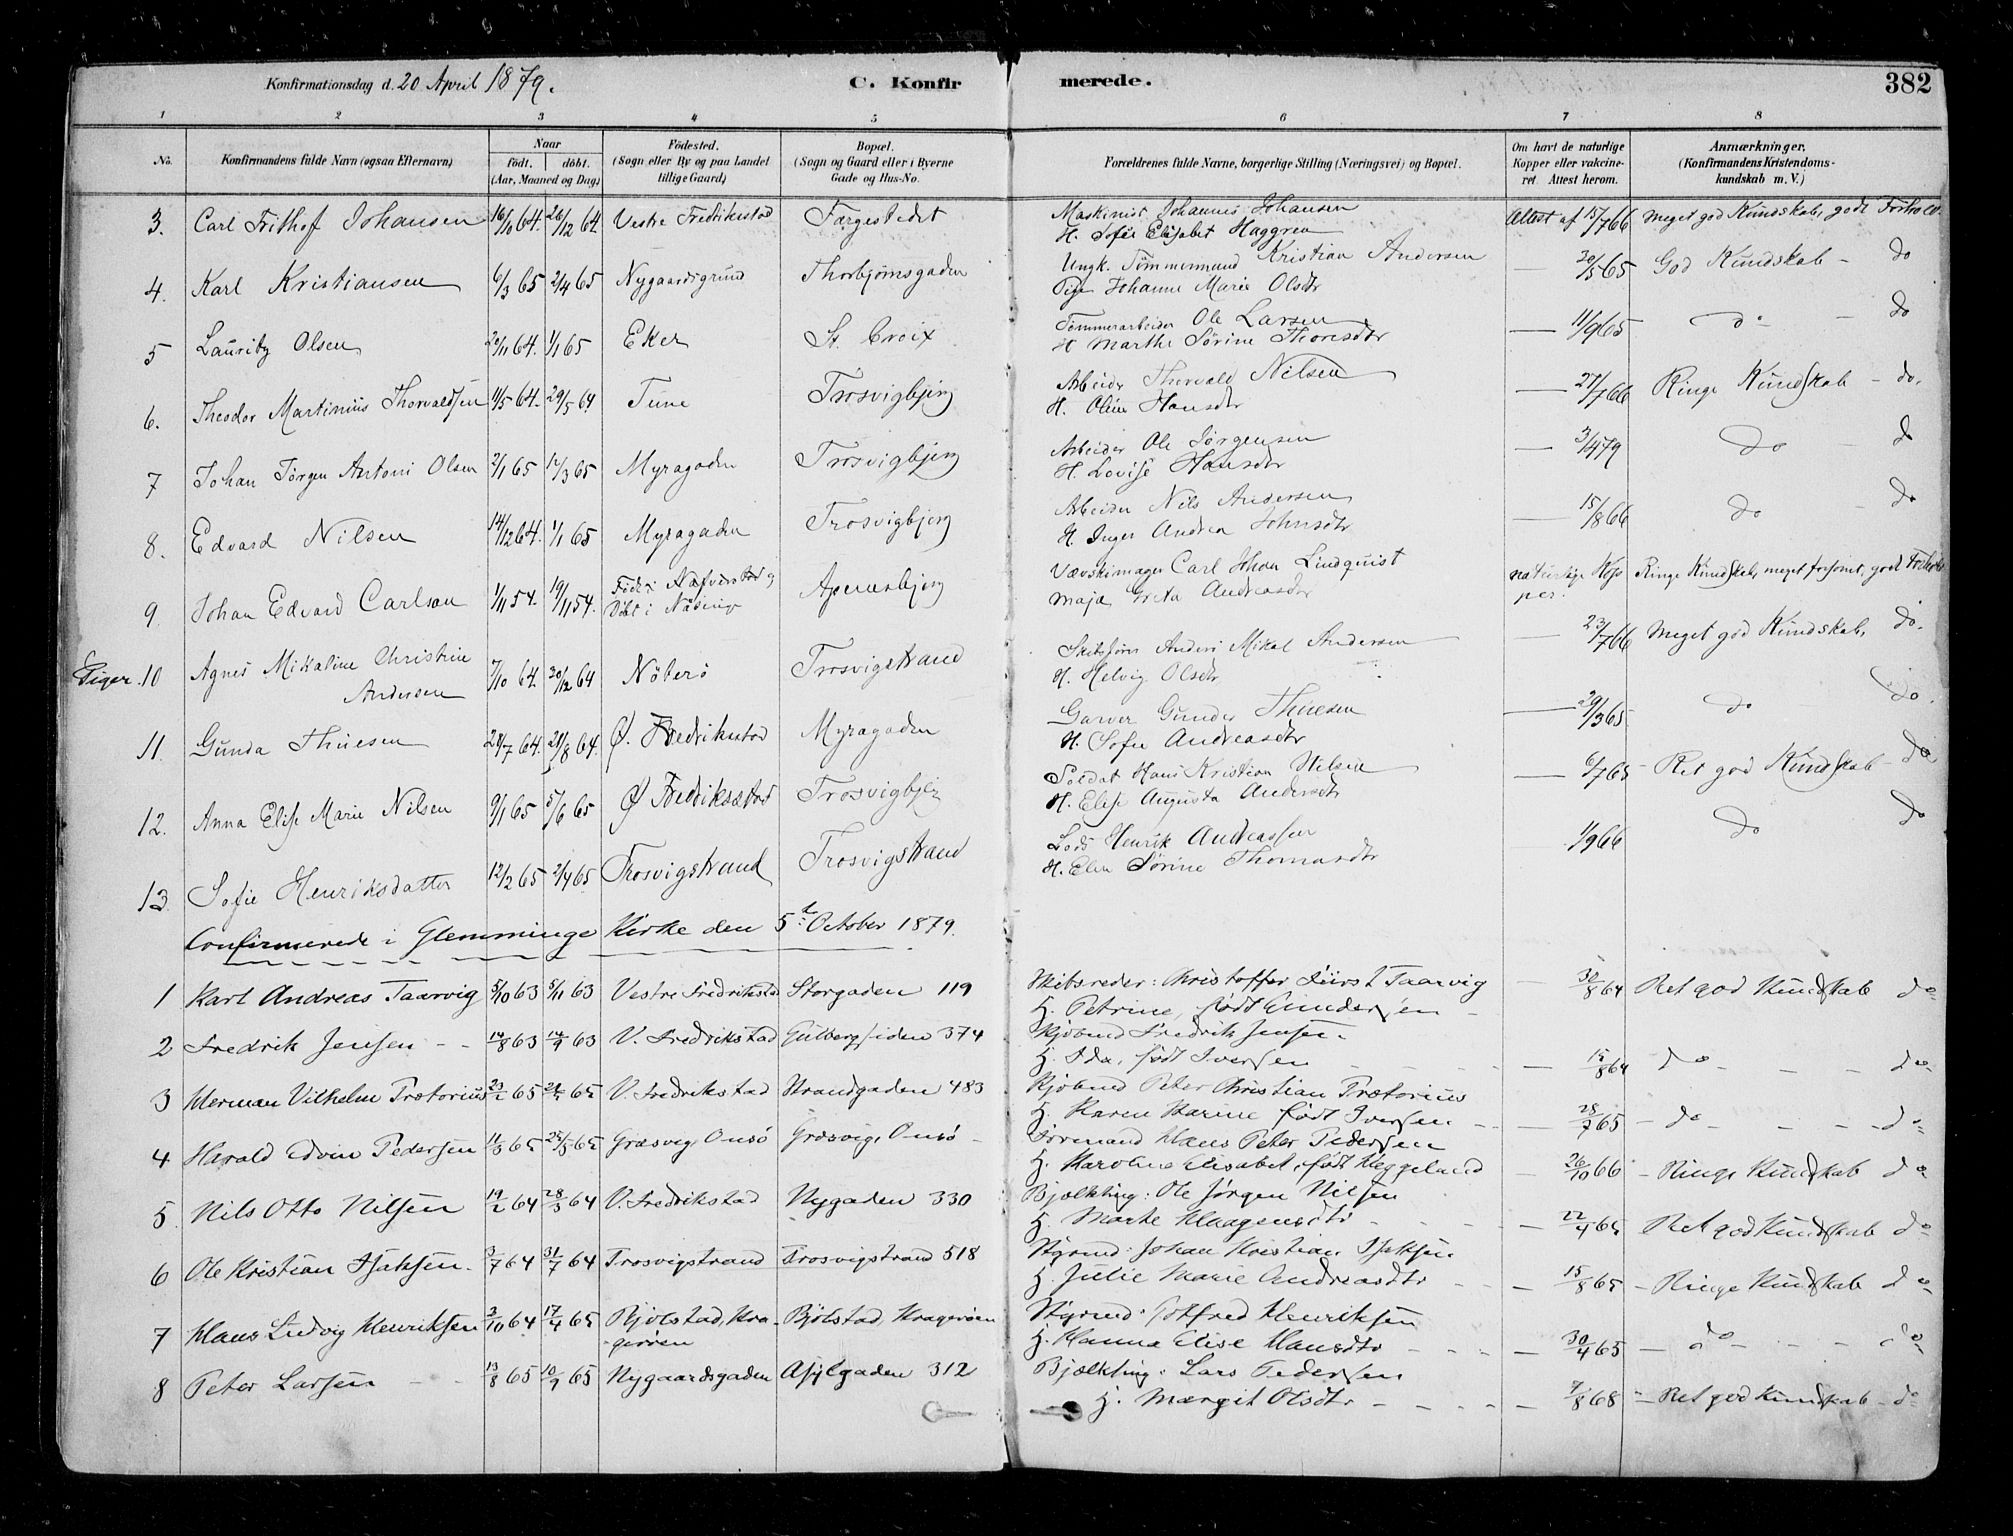 Konfirmationsdag d. 20 April 1879. C. Konfirmerede. 382
1 2 3 4 5 6 7 8
No. Konfirmandens fulde Navn (ogsaa Efternavn) Naar født. døbt. (Aar, Maaned og Dag) Fødested. (Sogn eller By og paa Landet tillige Gaard) Bopæl. (Sogn og Gaard eller i Byerne Gade og Hus-No. Forældrenes fulde Navne, borgerlige Stilling (Næringsvei) og Bopæl. Om havt de naturlige Kopper eller vakcineret. Attest herom. Anmærkninger. (Konfirmandens Kristendomskundskab m. V.)
3. Carl Frithof Johansen 16/10 64. 26/12 64. Vestre Fredrikstad Færgestedet Maskinist Johannes Johansen Attest af 15/7 66 Meget god Kundskab, godt Forhold.
H. Sofie Elisabet Haggren
4. Karl Kristiansen 6/3 65 2/4 65 Nygaardsgrund Thorbjørnsgaden Ungk. Tømmermand Kristian Andersen — 30/5 65 God Kundskab - do
Pige Johanne Marie Olsdtr
5 Lauritz Olsen 20/11 64. 1/1 65 Eker St. Croix Tømmerarbeider Ole Larsen — 11/9 65 do - do
H Marthe Sørine Thoresdtr
6. Theodor Martinius Thorvaldsen 11/5 64. 29/5 64 Tune Trosvigbjerg Arbeider Thorvald Nilsen — 27/7 66 Ringe Kundskab - do.
H. Oline Hansdtr
7 Johan Jørgen Antoni Olsen 2/1 65 12/3 65 Myragaden Trosvigbjerg Arbeider Ole Jørgensen — 3/4 79 do - do
H. Lovise Hansdtr
8. Edvard Nilsen 14/12 64. 1/1 65 Myragaden Trosvigbjerg Arbeider Nils Andersen — 15/8 66 do do
H. Inger Andrea Johnsdtr
9. Johan Edvard Carlson 1/11 54. 19/11 54. Født i Døbt i Apenesbjerg Carl Johan Lindquist naturlige Kopper. Ringe Kundskab, meget forsømt, godt Forhold
Maja Greta Andreasdtr
Piger. 10 Agnes Mikaline Christine Andersen 7/10 64. 26/12 64 Nøterø Trosvigstrand Skibsfører Anders Mikal Andersen — 23/7 66 Meget god Kundskab, do.
H. Helvig Olsdtr
11. Gunda Thuesen 28/7 64. 21/8 64. Ø. Fredrikstad Myragaden Garver Gunder Thuesen — 29/3 65 do do
H. Sofie Andreasdtr
12. Anna Elise Marie Nilsen 9/1 65 5/6 65 Ø Fredrikstad Trosvigbjerg Soldat Hans Kristian Nilsen — 6/7 65 Ret god Kundskab - do
H. Elise Augusta Andersdtr
13 Sofie Henriksdatter 12/2 65 2/4 65 Trosvigstrand Trosvigstrand Lods Henrik Andreassen 1/9 66 do do
H. Elen Sørine Thomasdtr
Confirmerede i Glemminge Kirke den 5te October 1879.
1 Karl Andreas Taarvig 5/10 63 5/11 63 Vestre Fredrikstad Storgaden 119 Skibsreder: Kristoffer Fürst Taarvig — 30/8 64 Ret god Kundskab do
H. Petrine, født Gundersen -
2 Fredrik Jensen - - 14/8 63 14/9 63 V. Fredrikstad Gulbergsiden 374 Kjøbmd Fredrik Jensen.
H. Ida, født Iversen — 15/8 64 do - - - do
3 Herman Vilhelm Prætorius 23/2 65 V. Fredrikstad Strandgaden 483 Kjøbmd Peter Christian Prætorius
H. Karen Marine født Iversen — 28/7 65 - do - - - do
4 Harald Edvin Pedersen 11/3 65 25/5 65 Græsvig, Onsø Græsvig, Onsø Formand Hans Peter Pedersen
H. Karoline Elisabet, født Heggelund — 26/10 66 - Ringe Kundskab do
5 Nils Otto Nilsen 19/2 64 28/3 64 V. Fredrikstad Nygaden 330 Bjælketing: Ole Jørgen Nilsen
H. Marte Haagensdtr — 22/4 65 Ret god Kundskab do
6 Ole Kristian Isaksen. 3/7 64 31/7 64 Trosvigstrand Trosvigstrand 518 Styrmd: Johan Kristian Isaksen
H. Julie Marie Andreasdtr — 15/8 65 - Ringe Kundskab do
7 Hans Ludvig Henriksen 3/10 64 17/4 65 Bjølstad, Kragerøen Bjølstad, Kragerøen Styrmd: Gotfred Henriksen
H. Hanna Elise Hansdtr — 30/4 65 - do - - - do
8 Peter Larsen - - 13/8 65 10/9 65 Nygaardsgaden Asylgaden 312 Bjælketing: Lars Pedersen
H. Margit Olsdtr — 7/8 68 - Ret god Kundskab - do